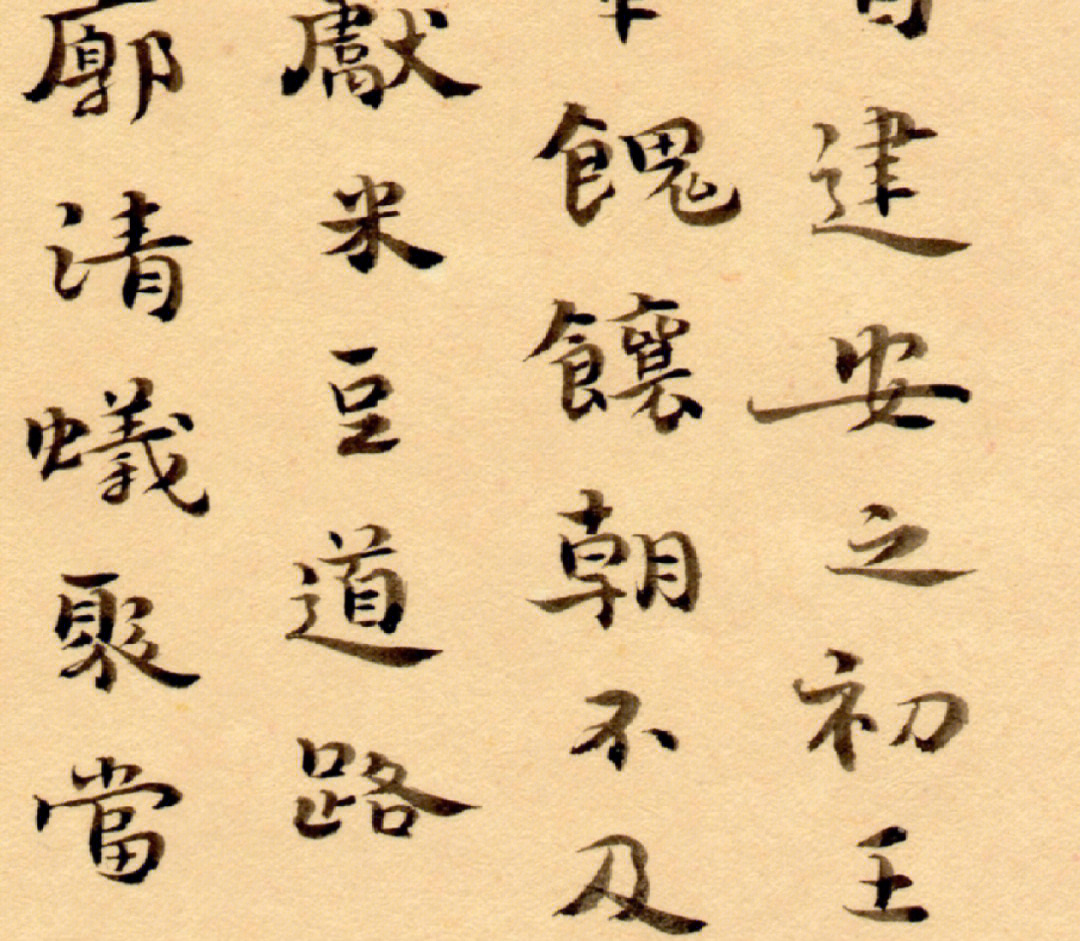 建安之初王
餽饟朝不及
獻米豆道路
廓清蟻聚當